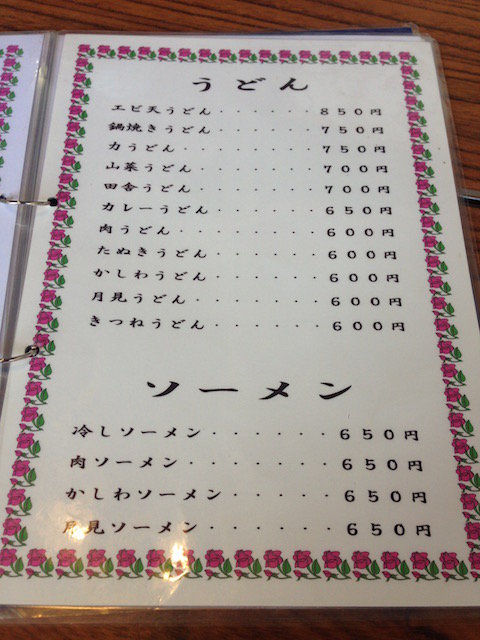 うどん
エビ天うどん・・・・・・850円
鍋焼きうどん・・・・・・750円
力うどん・・・・・・・・750円
山菜うどん・・・・・・・700円
田舎うどん・・・・・・・700円
カレーうどん・・・・・・650円
肉うどん・・・・・・・・600円
たぬきうどん・・・・・・600円
かしわうどん・・・・・・600円
月見うどん・・・・・・・600円
きつねうどん・・・・・・600円
ソーメン
冷しソーメン・・・・・・650円
肉ソーメン・・・・・・・650円
かしわソーメン・・・・・650円
月見ソーメン・・・・・・650円